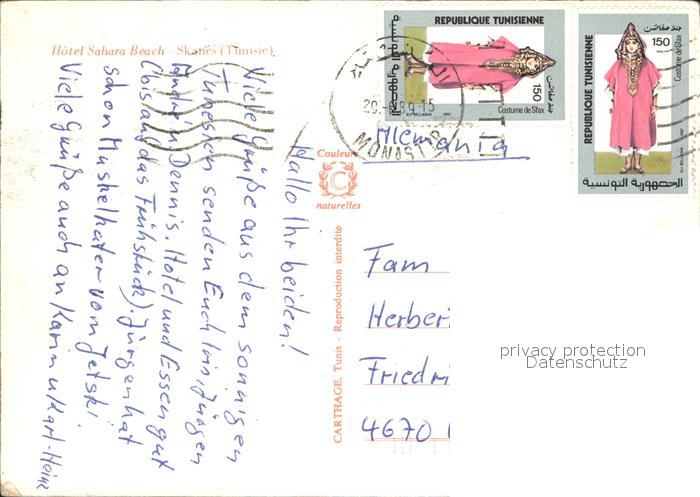 Hôtel Sahara Beach - Skanès (Tunisie)
Hallo Ihr beiden!
Viele Grüße aus dem sonnigen
Tunesien senden Euch Jürgen
Andrè u Dennis. Hotel und Essen gut
(bis auf das Frühstück). Jürgen hat
schon Muskelkater vom Jetski
Viele Grüße auch an Karin u Karl-Heinz
Couleurs
C
naturelles
CARTHAGE, Tunis - Reproduction interdite
REPUBLIQUE TUNISIENNE
الجمهورية التونسية
جلة صفاقس
150
Costume de Sfax
1987
MONASTIR
REPUBLIQUE TUNISIENNE
150
Costume de Sfax
1987
الجمهورية التونسية
Alemania
Fam
Herber
Friedri
4670
privacy protection
Datenschutz